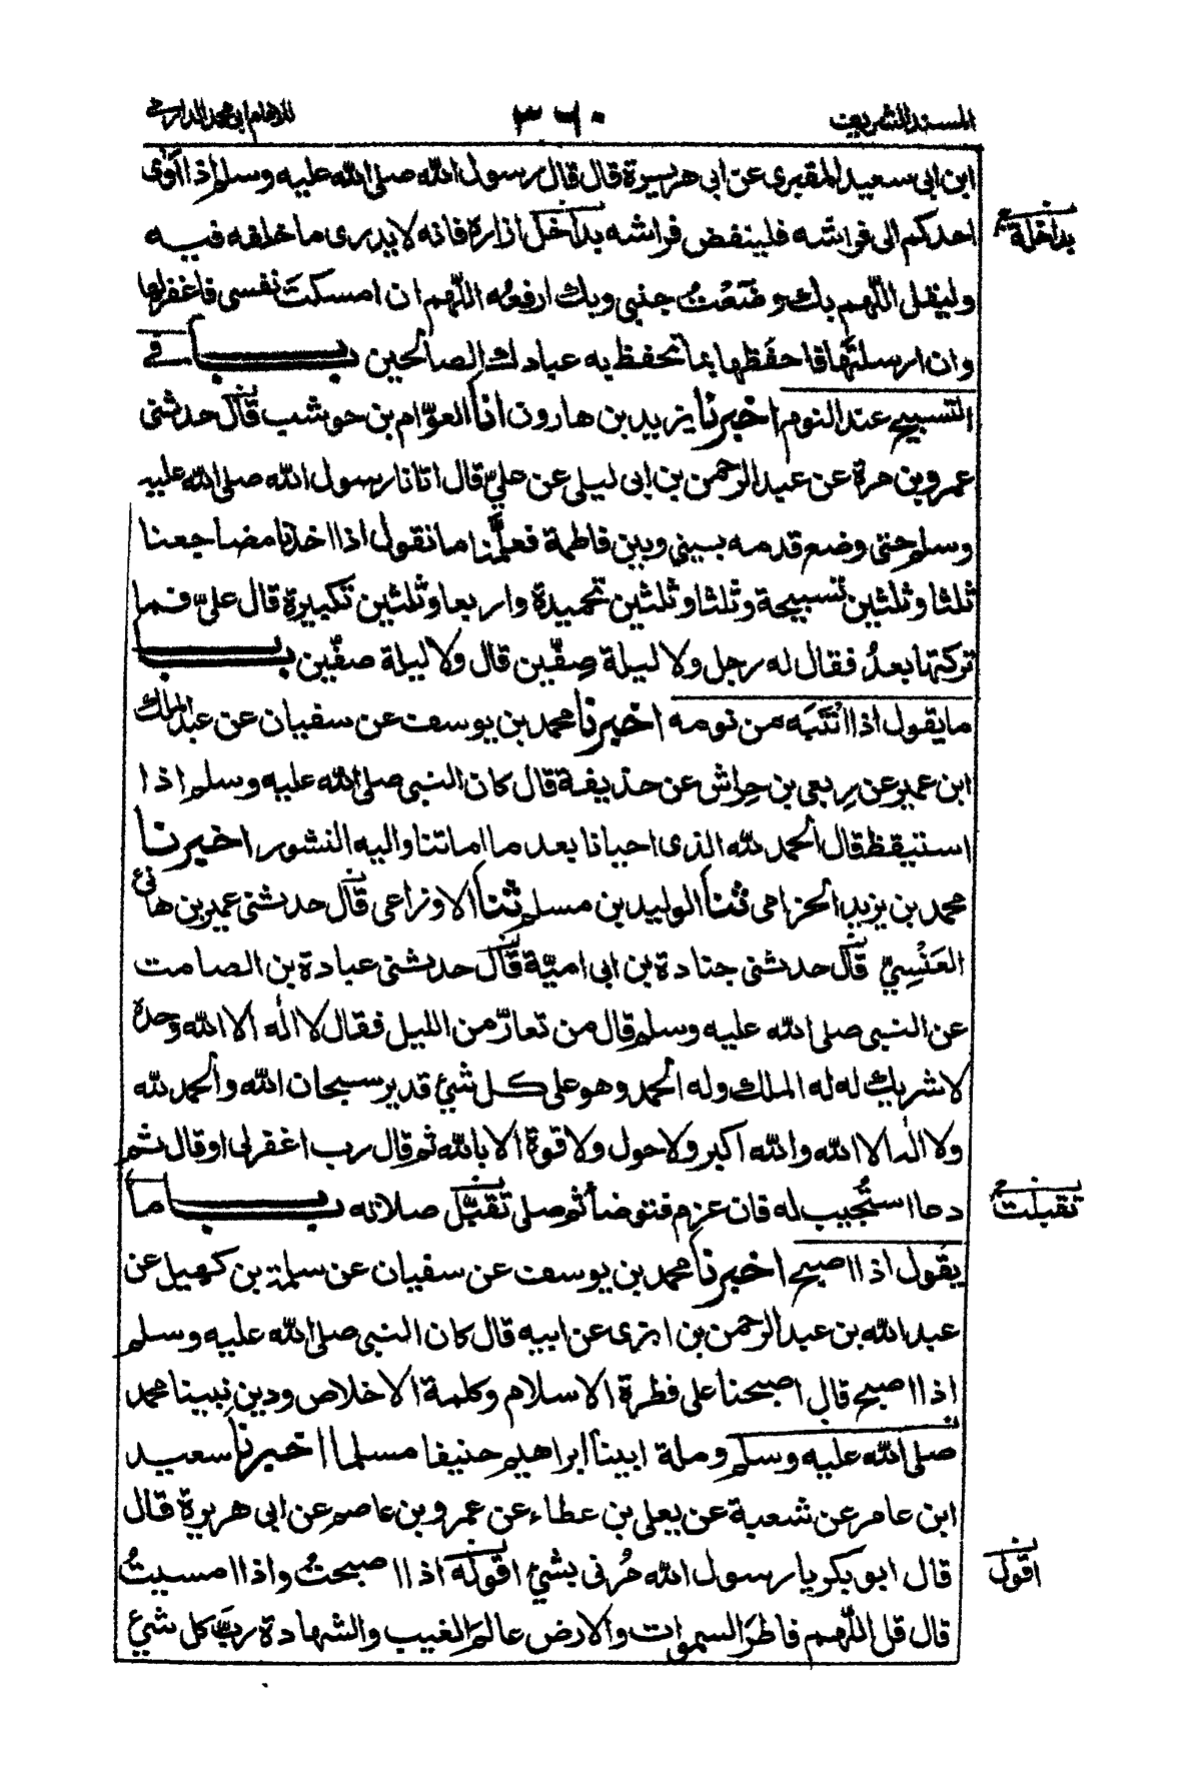 المسند الشريف ٣٦٠ للامام ابى محمد الدارمى
ابن ابى سعيد المقبرى عن ابى هريرة قال قال رسول الله صلى الله عليه وسلم اذا اٰوى
احدكم الى فراشه فلينفض فراشه بداخل ازاره فانه لا يدرى ما خلفه فيه
بداخلة
وليقل اللّهم بك وضَعْتُ جنبى وبك ارفعه اللّهم ان امسكتَ نفسى فاغفرلها
وان ارسلتَها فاحفَظها بما تحفظ به عبادك الصالحين بــاب فى
التسبيح عند النوم اخبرنا يزيد بن هارون انا العوّام بن حوشب قال حدثنى
عمرو بن مرة عن عبد الرحمن بن ابى ليلى عن علىّ قال اتانا رسول الله صلى الله عليه
وسلم حتى وضع قدمه بينى وبين فاطمة فعلَّمنا ما نقول اذا اخذنا مضاجعنا
ثلثا وثلثين تسبيحة وثلثا وثلثين تحميدة واربعا وثلثين تكبيرة قال علىّ فما
تركتها بعدُ فقال له رجل ولا ليلة صِفّين قال ولا ليلة صفّين بــاب
ما يقول اذا انْتَبَه من نومه اخبرنا محمد بن يوسف عن سفيان عن عبد الملك
ابن عمير عن رِبعى بن حِراش عن حذيفة قال كان النبى صلى الله عليه وسلم اذا
استيقظ قال الحمد لله الذى احيانا بعد ما اماتنا واليه النشور اخبرنا
محمد بن يزيد الحزامى ثنا الوليد بن مسلم ثنا الاوزاعى قال حدثنى عمير بن هانئ
العَنْسِيّ قال حدثنى جنادة بن ابى اميّة قال حدثنى عبادة بن الصامت
عن النبى صلى الله عليه وسلم قال من تعارّ من الليل فقال لا اله الا الله وحده
لا شريك له له الملك وله الحمد وهو على كل شئ قدير سبحان الله والحمد لله
ولا اله الا الله والله اكبر ولا حول ولا قوة الا بالله ثم قال رب اغفر لى او قال ثم
دعا استُجيب له فان عزم فتوضأ ثم صلى تقبّل صلاته بــاب ما
تقبلت
يقول اذا اصبح اخبرنا محمد بن يوسف عن سفيان عن سلمة بن كهيل عن
عبد الله بن عبد الرحمن بن ابزى عن ابيه قال كان النبى صلى الله عليه وسلم
اذا اصبح قال اصبحنا على فطرة الاسلام وكلمة الاخلاص ودين نبينا محمد
صلى الله عليه وسلم وملة ابينا ابراهيم حنيفا مسلما اخبرنا سعيد
ابن عامر عن شعبة عن يعلى بن عطاء عن عمرو بن عاصم عن ابى هريرة قال
قال ابو بكر يا رسول الله مُرنى بشئ اقوله اذا اصبحتُ واذا امسيتُ
اقول
قال قل اللّهم فاطرَ السموات والارض عالم الغيب والشهادة ربّ كل شئ